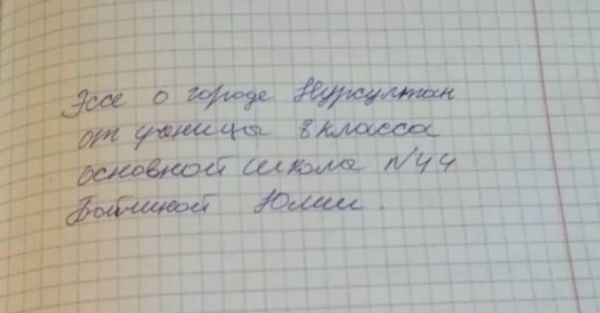 Эссе о городе Нурсултан
от ученицы 8 класса
основной школа №44
Юлии.